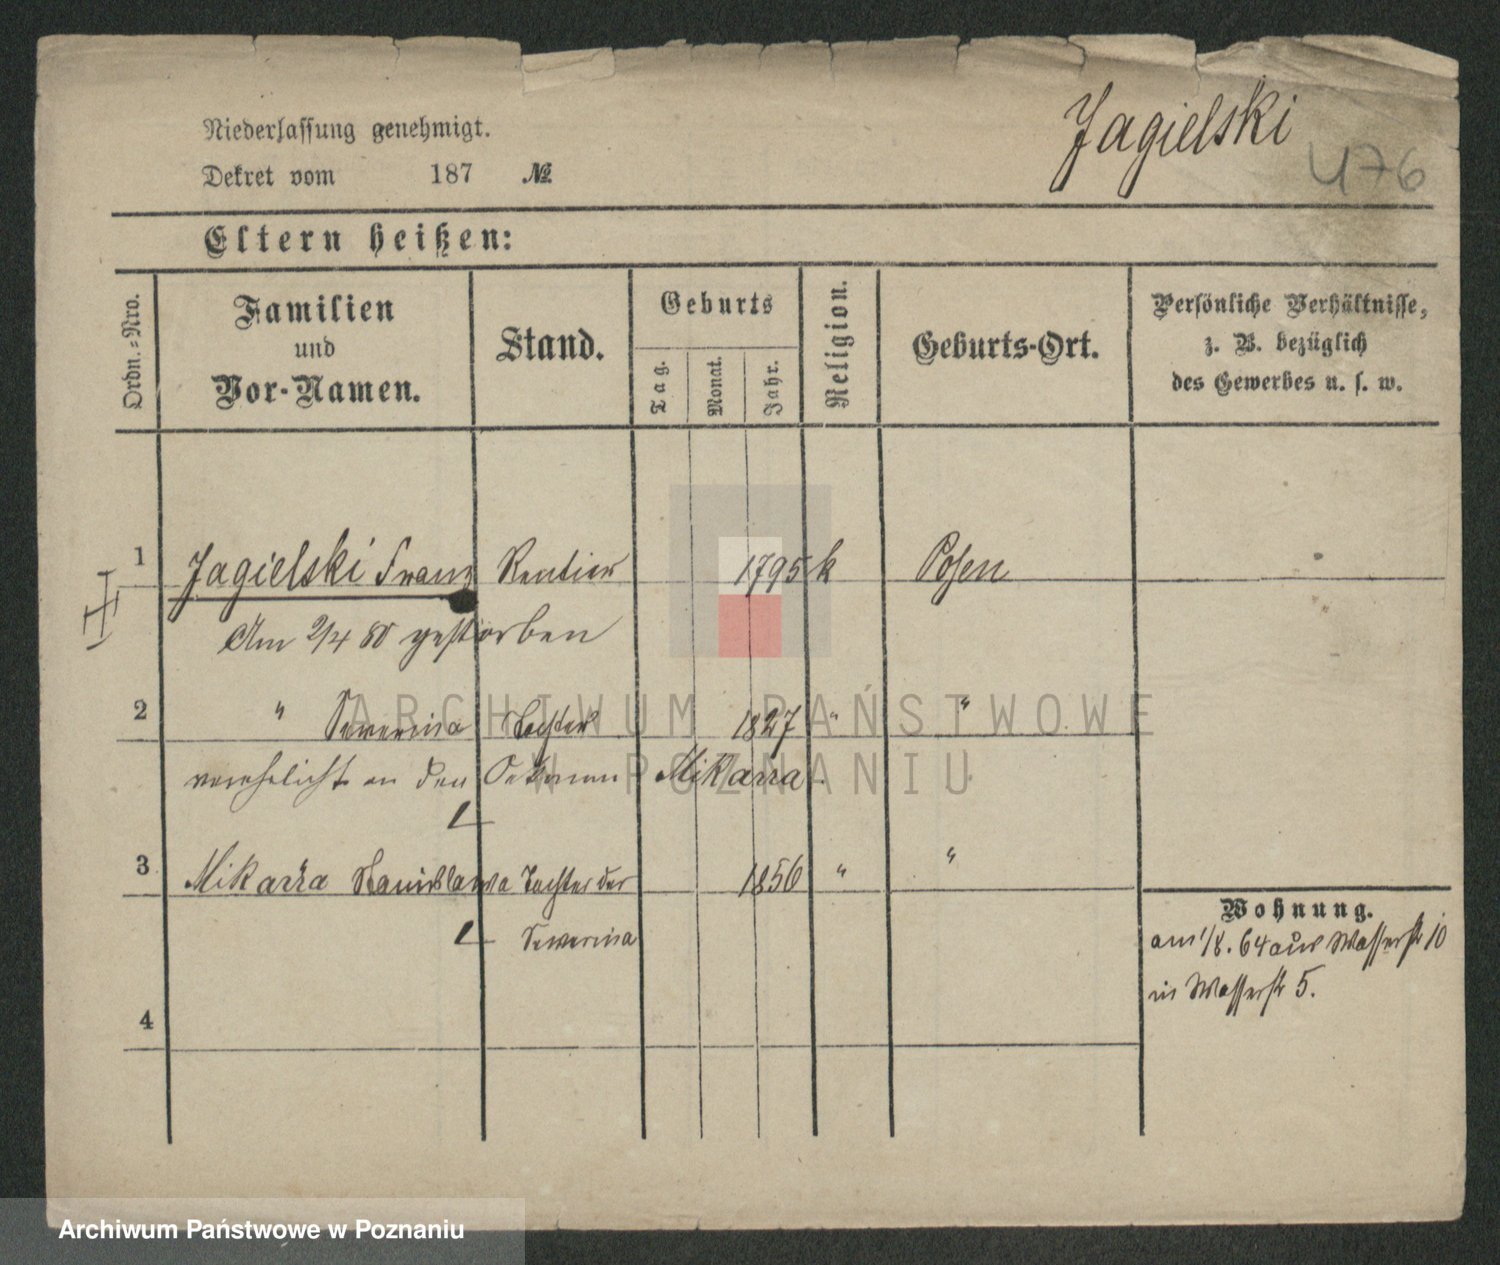 Niederlassung genehmigt.
Jagielski
476
Dekret vom 187 №
Eltern heißen:
Ordn.-Nro.
Familien
und
Vor-Namen.
Stand.
Geburts
Tag.
Monat.
Jahr.
Religion.
Geburts-Ort.
Persönliche Verhältnisse,
z. B. bezüglich
des Gewerbes u. s. w.
1 Jagielski Franz Rentier 1795 k Posen
Am 2/4 80 gestorben
2 " Severina Tochter 1827 " "
verehelicht an den Oekonom Mikarra.
3 Mikarra Stanislawa Tochter der 1856 " "
Severina
4
Wohnung.
am 1/8. 64 aus Wasserstr 10
in Wasserstr 5.
ARCHIWUM PAŃSTWOWE
W POZNANIU
Archiwum Państwowe w Poznaniu